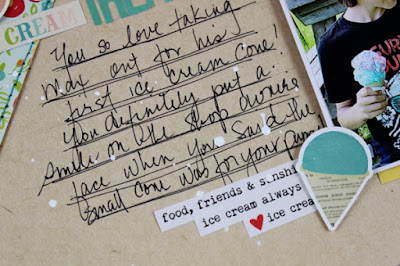 CREAM
You so love taking
Max out for his
first ice cream cone!
You definitely put a
smile on the shop owners
face when you said the
small cone was for your
food, friends & sunshi
ice cream always
ice crea